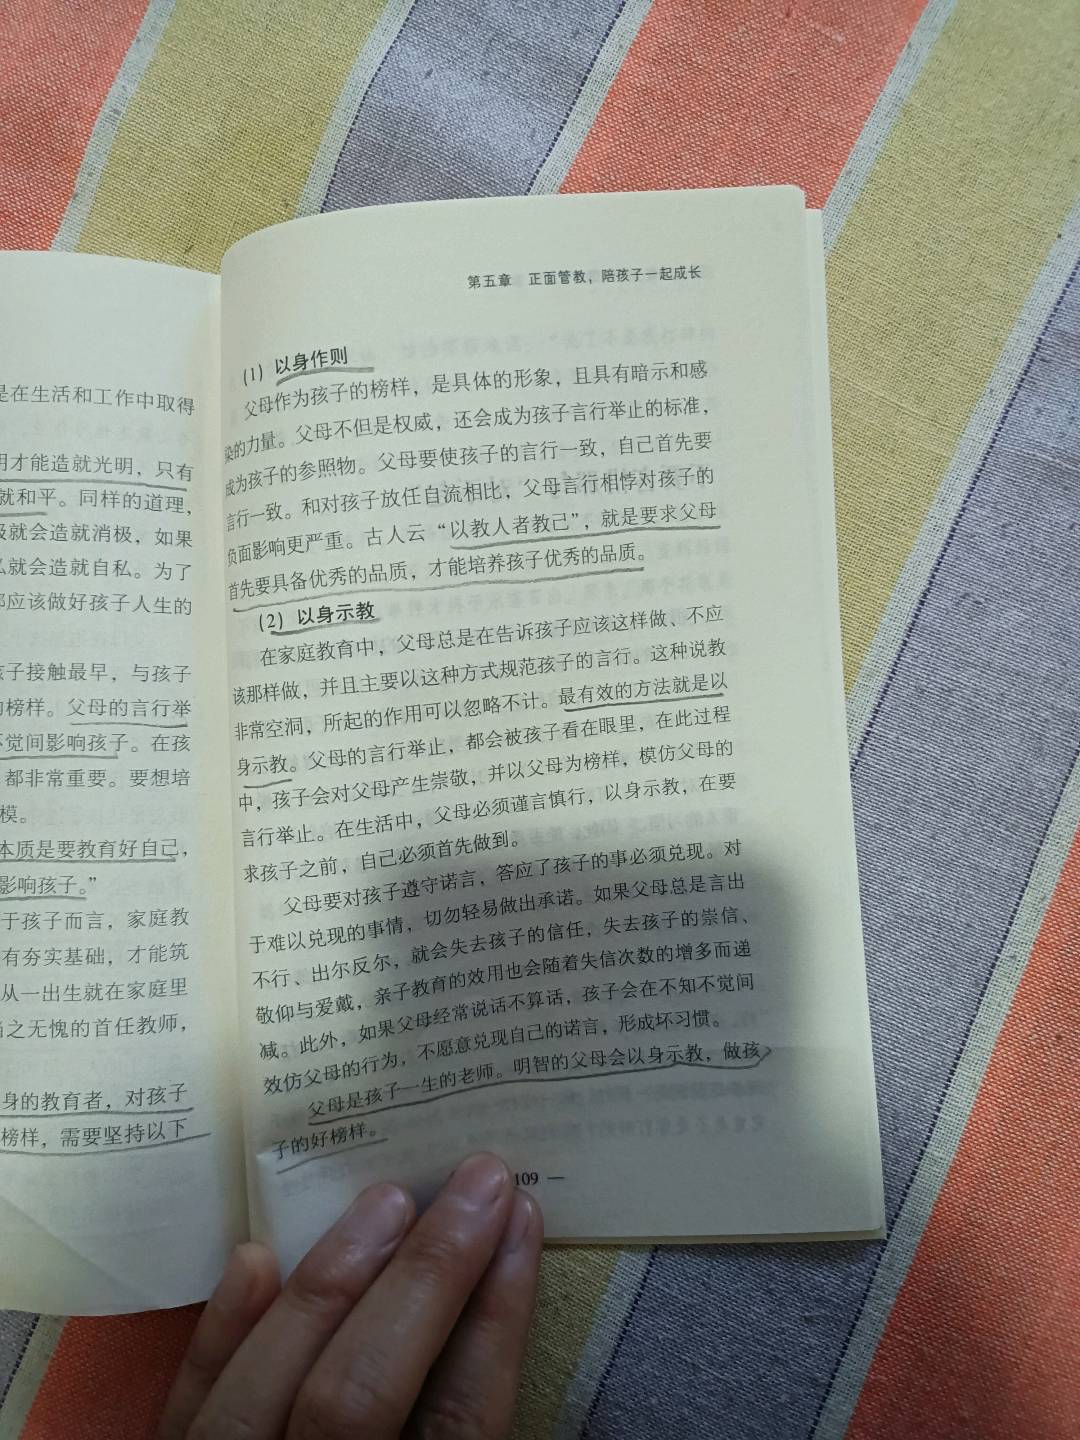 是在生活和工作中取得
明才能造就光明，只有
就和平。同样的道理，
极就会造就消极，如果
就会造就自私。为了
都应该做好孩子人生的
孩子接触最早，与孩子
的榜样。父母的言行举
不觉间影响孩子。在孩
都非常重要。要想培
模。
本质是要教育好自己，
影响孩子。”
于孩子而言，家庭教
有夯实基础，才能筑
从一出生就在家庭里
当之无愧的首任教师，
身的教育者，对孩子
榜样，需要坚持以下
第五章 正面管教，陪孩子一起成长
（1）以身作则
父母作为孩子的榜样，是具体的形象，且具有暗示和感
染的力量。父母不但是权威，还会成为孩子言行举止的标准，
成为孩子的参照物。父母要使孩子的言行一致，自己首先要
言行一致。和对孩子放任自流相比，父母言行相悖对孩子的
负面影响更严重。古人云“以教人者教己”，就是要求父母
首先要具备优秀的品质，才能培养孩子优秀的品质。
（2）以身示教
在家庭教育中，父母总是在告诉孩子应该这样做、不应
该那样做，并且主要以这种方式规范孩子的言行。这种说教
非常空洞，所起的作用可以忽略不计。最有效的方法就是以
身示教。父母的言行举止，都会被孩子看在眼里，在此过程
中，孩子会对父母产生崇敬，并以父母为榜样，模仿父母的
言行举止。在生活中，父母必须谨言慎行，以身示教，在要
求孩子之前，自己必须首先做到。
父母要对孩子遵守诺言，答应了孩子的事必须兑现。对
于难以兑现的事情，切勿轻易做出承诺。如果父母总是言出
不行、出尔反尔，就会失去孩子的信任，失去孩子的崇信、
敬仰与爱戴，亲子教育的效用也会随着失信次数的增多而递
减。此外，如果父母经常说话不算话，孩子会在不知不觉间
效仿父母的行为，不愿意兑现自己的诺言，形成坏习惯。
父母是孩子一生的老师。明智的父母会以身示教，做孩
子的好榜样。
109 —